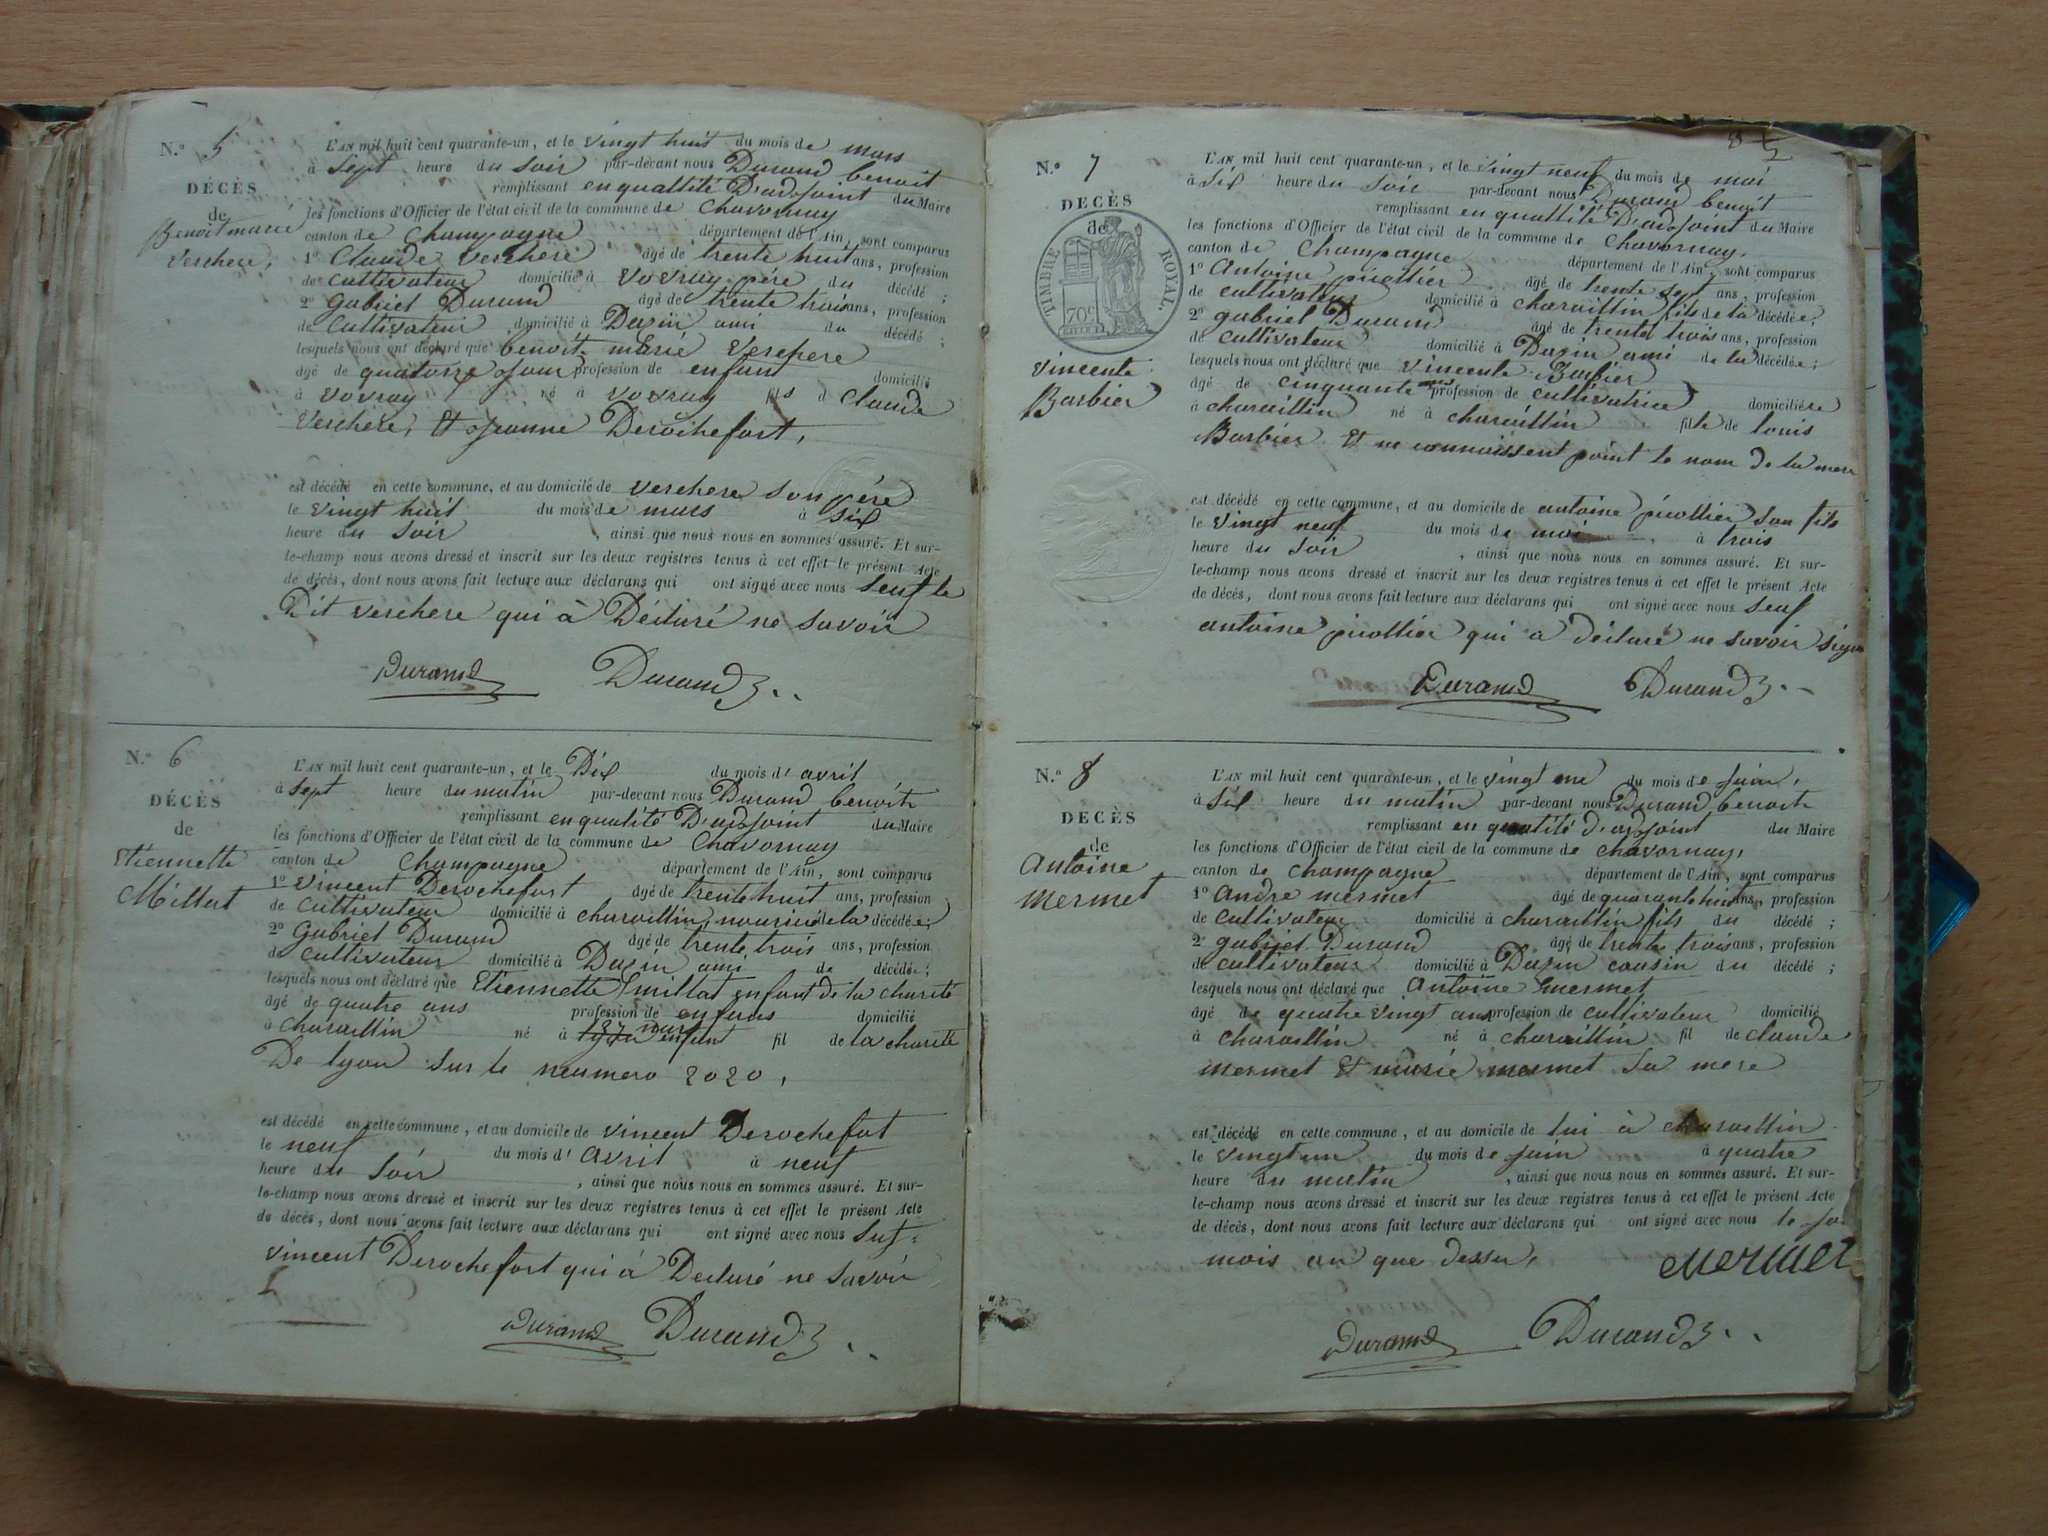 N.° 5
DÉCÈS
de
Benoit marie
Verchere,
L'AN mil huit cent quarante-un, et le vingt huit du mois de mars
à Sept heure du Soir par-devant nous Durand benoit
remplissant en quallité D'adjoint du Maire
les fonctions d'Officier de l'état civil de la commune de Chavornay
canton de Champagne département de l'Ain, sont comparus
1° Claude verchere âgé de trente huit ans, profession
de Cultivateur domicilié à vovray père du décédé ;
2° gabriel Durand âgé de trente trois ans, profession
de Cultivateur domicilié à Dazin ami du décédé ;
lesquels nous ont déclaré que benoit marie Verchere
âgé de quatorze jour profession de enfant domicilié
à vovray né à vovray fils d Claude
Verchère, Et jeanne Derochefort,
est décédé en cette commune, et au domicile de verchere Son père
le vingt huit du mois de mars à Six
heure du Soir , ainsi que nous nous en sommes assuré. Et sur-
le-champ nous avons dressé et inscrit sur les deux registres tenus à cet effet le présent Acte
de décès, dont nous avons fait lecture aux déclarans qui ont signé avec nous Seuf le
Dit verchere qui à Déclaré ne Savoir
Durand Durand
N.° 6
DÉCÈS
de
Etiennette
Millat
L'AN mil huit cent quarante-un, et le Dix du mois d' avril
à Sept heure du matin par-devant nous Durand benoit
remplissant en qualité D'adjoint du Maire
les fonctions d'Officier de l'état civil de la commune de Chavornay
canton de Champagne département de l'Ain, sont comparus
1° Vincent Derochefort âgé de trente huit ans, profession
de Cultivateur domicilié à charaillin, nouricié de la décédée;
2° Gabriel Durand âgé de trente trois ans, profession
de Cultivateur domicilié à Dazin ami de décédée;
lesquels nous ont déclaré que Etiennette millat enfant de la charité
âgé de quatre ans profession de enfans domicilié
à Charaillin né à enfant fil de la charité
De lyon Sur le neumero 2020,
est décédé en cette commune, et au domicile de vincent Derochefort
le neuf du mois d' avril à neuf
heure du Soir , ainsi que nous nous en sommes assuré. Et sur-
le-champ nous avons dressé et inscrit sur les deux registres tenus à cet effet le présent Acte
de décès, dont nous avons fait lecture aux déclarans qui ont signé avec nous Seuf
vincent Derochefort qui à Declaré ne Savoir
Durand Durand
8
N.° 7
DÉCÈS
de
TIMBRE ROYAL.
70c
vincente
Barbier
L'AN mil huit cent quarante-un, et le vingt neuf du mois de mai
à Six heure du Soir par-devant nous Durand benoit
remplissant en quallité D'adjoint du Maire
les fonctions d'Officier de l'état civil de la commune de Chavornay,
canton de Champagne département de l'Ain, sont comparus
1° Antoine picollier âgé de trente sept ans, profession
de cultivateur domicilié à charaillin fils de la décédée;
2° gabriel Durand âgé de trente trois ans, profession
de Cultivateur domicilié à Dazin ami de la décédée;
lesquels nous ont déclaré que vincente Barbier
âgé de cinquante ans profession de cultivatrice domiciliére
à charaillin né à charaillin fille de louis
Barbier Et ne connoissent point le nom de la mere
est décédé en cette commune, et au domicile de antoine picollier Son fils
le Vingt neuf du mois de mai à trois
heure du Soir , ainsi que nous nous en sommes assuré. Et sur-
le-champ nous avons dressé et inscrit sur les deux registres tenus à cet effet le présent Acte
de décès, dont nous avons fait lecture aux déclarans qui ont signé avec nous Seuf
antoine picollier qui a déclaré ne savoir signe
Durand Durand
N.° 8
DÉCÈS
de
Antoine
mermet
L'AN mil huit cent quarante-un, et le vingt une du mois de juin,
à Six heure du matin par-devant nous Durand benoit
remplissant en quatité d'adjoint du Maire
les fonctions d'Officier de l'état civil de la commune de chavornay,
canton de Champagne département de l'Ain, sont comparus
1° andre mermet âgé de quarante huit ans, profession
de Cultivateur domicilié à charaillin fils du décédé ;
2° gabriel Durand âgé de trente trois ans, profession
de cultivateur domicilié à Dazin cousin du décédé ;
lesquels nous ont déclaré que Antoine mermet
âgé de quatre vingt ans profession de cultivateur domicilié
à charaillin né à charaillin fil de claude
mermet Et marie mermet Sa mere
est décédé en cette commune, et au domicile de lui à charaillin
le vingt un du mois de juin à quatre
heure du matin , ainsi que nous nous en sommes assuré. Et sur-
le-champ nous avons dressé et inscrit sur les deux registres tenus à cet effet le présent Acte
de décès, dont nous avons fait lecture aux déclarans qui ont signé avec nous le
mois an que dessu, mermet
Durand Durand